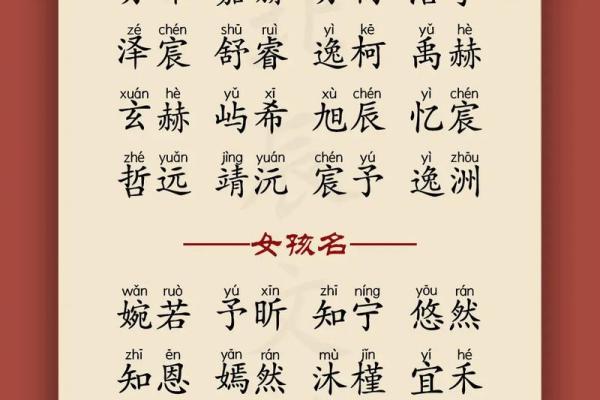 zé chén shū ruì yì kē yǔ hè
泽宸 舒睿 逸柯 禹赫
xuán hè yǔ xī xù chén yì chén
玄赫 屿希 旭辰 忆宸
zhé yuǎn jìng yuán chén yú yì zhōu
哲远 靖沅 宸予 逸洲
女孩名
wǎn ruò yú xīn zhī níng yōu rán
婉若 予昕 知宁 悠然
zhī ēn yān rán mù jǐn yí hé
知恩 嫣然 沐槿 宜禾